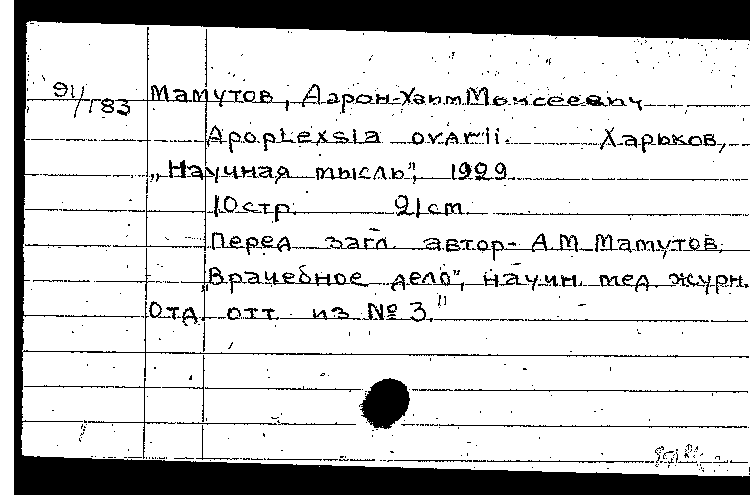 91/183 Мамутов, Аарон-Хаим Моисеевич
Apoplexsia ovarii. Харьков,
„Научная мысль", 1929.
10 стр. 21 cm.
Перед загл. автор- А.М. Мамутов.
„Врачебное дело", научн. мед. журн.
Отд. отт. из № 3."